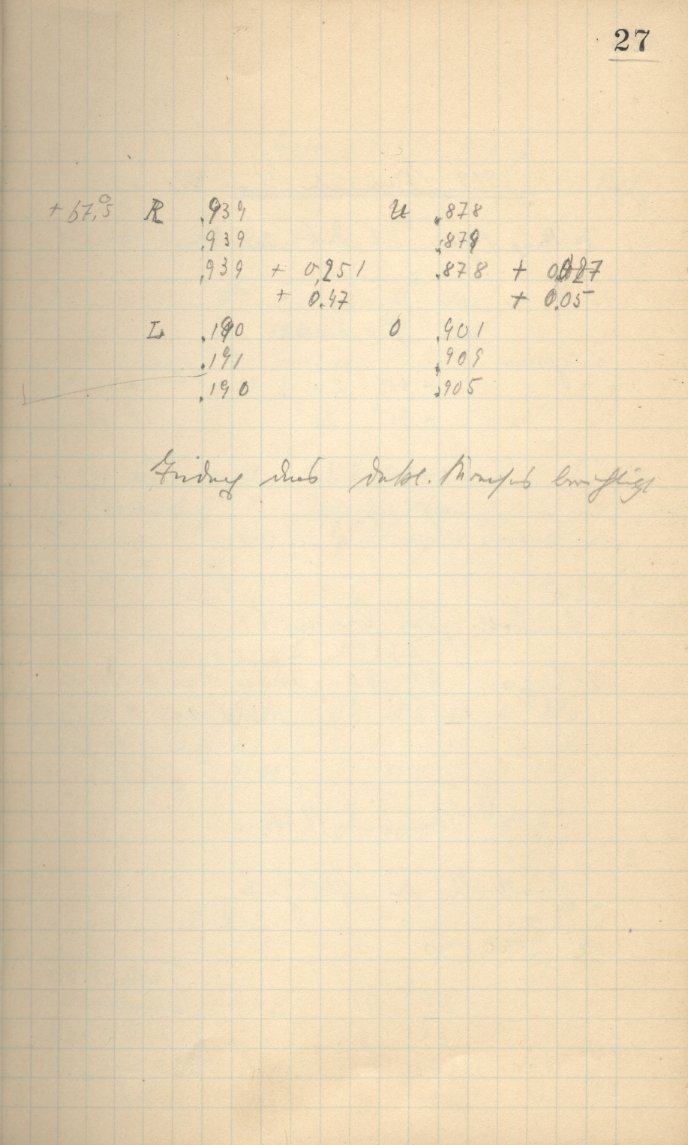 27
+ 67,5° R .939 U .878
.939 .879
.939 + 0,251 .878 + 0,027
+ 0.47 + 0.05
L .190 O .901
.191 .909
.190 .905
des dekl. Kreises berichtigt